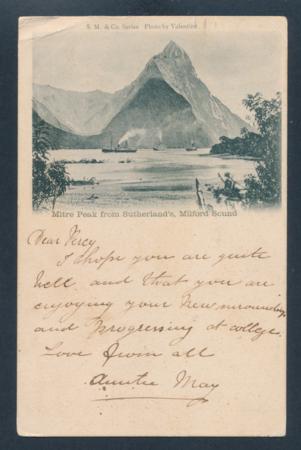 S. M. & Co. Series Photo by Valentine
Mitre Peak from Sutherland's, Milford Sound
Dear Percy
I hope you are quite
well and that you are
enjoying your New surroundings
and Progressing at college.
Love from all
Auntie May